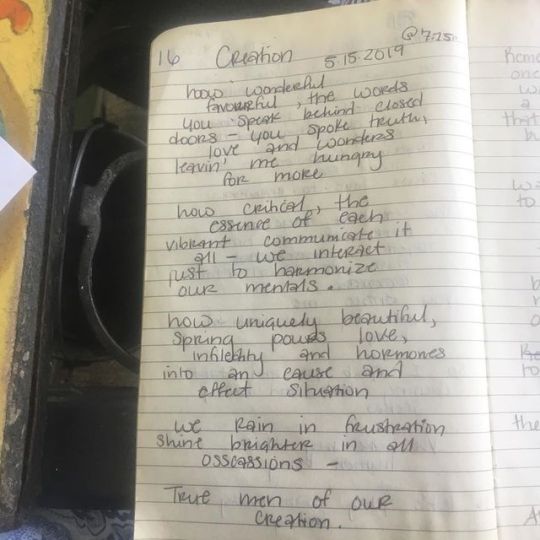 @7:25
16 Creation 5.15.2019
how wonderful
favourful, the words
you speak behind closed
doors - you spoke truth,
love and wonders
leavin' me hungry
for more
how critical, the
essence of each
vibrant communicate it
all - we interact
just to harmonize
our mentals.
how uniquely beautiful,
spring pours love,
infidelity and hormones
into an cause and
effect situation
we rain in frustration
shine brighter in all
osscassions -
True men of our
creation.